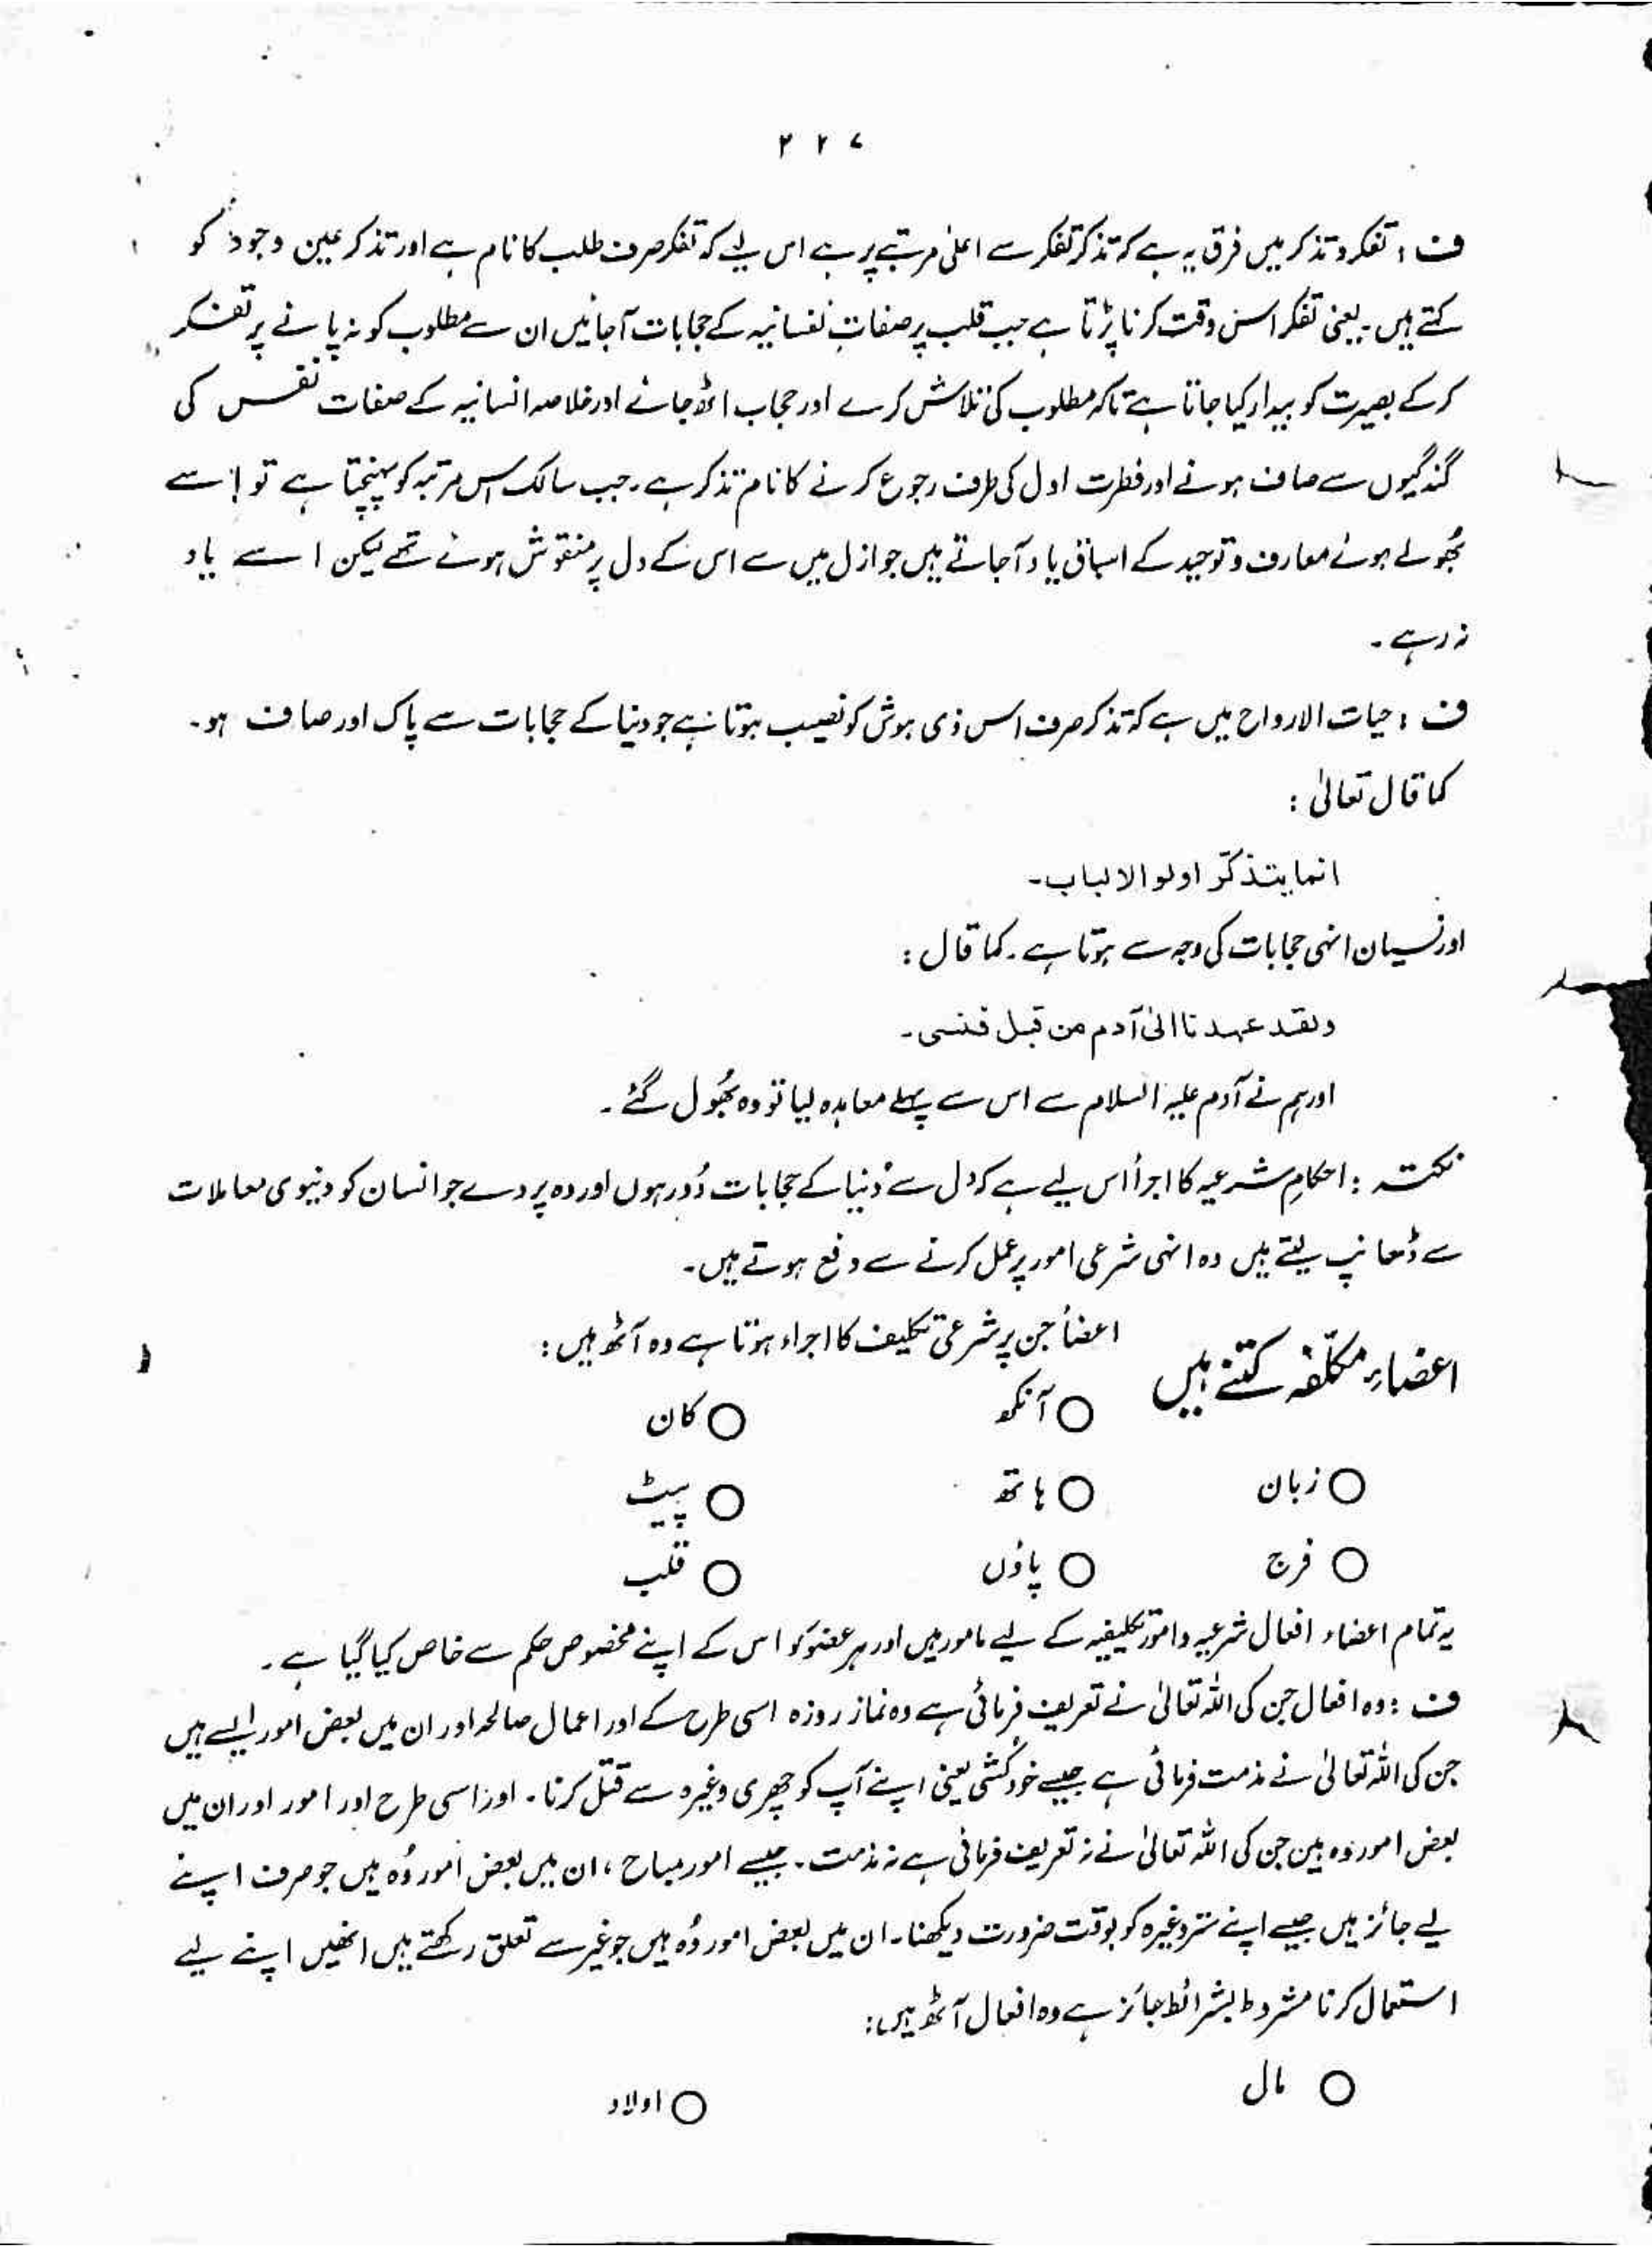 ۲۲۷
ف : تفکر و تذکر میں فرق یہ ہے کہ تذکر تفکر سے اعلیٰ مرتبے پر ہے اس لیے کہ تفکر صرف طلب کا نام ہے اور تذکر عین وجود کو
کہتے ہیں۔ یعنی تفکر اس وقت کرنا پڑتا ہے جب قلب پر صفاتِ نفسانیہ کے حجابات آجائیں ان سے مطلوب کو نہ پانے پر تفکر
کرکے بصیرت کو بیدار کیا جاتا ہے تاکہ مطلوب کی تلاش کرے اور حجاب اٹھ جائے اور خلاصہ انسانیہ کے صفات نفس کی
گندگیوں سے صاف ہونے اور فطرت اول کی طرف رجوع کرنے کا نام تذکر ہے۔ جب سالک اس مرتبہ کو پہنچتا ہے تو اسے
بھُولے ہوئے معارف و توحید کے اسباق یاد آجاتے ہیں جو ازل میں سے اس کے دل پر منقوش ہوئے تھے لیکن اسے یاد
نہ رہے۔
ف : حیات الارواح میں ہے کہ تذکر صرف اس ذی ہوش کو نصیب ہوتا ہے جو دنیا کے حجابات سے پاک اور صاف ہو۔
کما قال تعالیٰ :
انما یتذکّر اولوا الالباب۔
اور نسیان انہی حجابات کی وجہ سے ہوتا ہے۔ کما قال :
ولقد عہدنا الیٰ آدم من قبل فنسی۔
اور ہم نے آدم علیہ السلام سے اس سے پہلے معاہدہ لیا تو وہ بھُول گئے۔
نکتہ : احکامِ شرعیہ کا اجرأ اس لیے ہے کہ دل سے دُنیا کے حجابات دُور ہوں اور وہ پردے جو انسان کو دنیوی معاملات
سے ڈھانپ لیتے ہیں وہ انہی شرعی امور پر عمل کرنے سے دفع ہوتے ہیں۔
اعضاءِ مکلّفہ کتنے ہیں اعضأ جن پر شرعی تکلیف کا اجراء ہوتا ہے وہ آٹھ ہیں :
○ آنکھ ○ کان
○ زبان ○ ہاتھ ○ پیٹ
○ فرج ○ پاؤں ○ قلب
یہ تمام اعضاء افعال شرعیہ و امور تکلیفیہ کے لیے مامور ہیں اور ہر عضو کو اس کے اپنے مخصوص حکم سے خاص کیا گیا ہے۔
ف : وہ افعال جن کی اللہ تعالیٰ نے تعریف فرمائی ہے وہ نماز روزہ اسی طرح کے اور اعمال صالحہ اور ان میں بعض امور ایسے ہیں
جن کی اللہ تعالیٰ نے مذمت فرمائی ہے جیسے خودکُشی یعنی اپنے آپ کو چھری وغیرہ سے قتل کرنا۔ اور اسی طرح اور امور اور ان میں
بعض امور وہ ہیں جن کی اللہ تعالیٰ نے نہ تعریف فرمائی ہے نہ مذمت۔ جیسے امور مباح ، ان میں بعض امور وُہ ہیں جو صرف اپنے
لیے جائز ہیں جیسے اپنے ستر وغیرہ کو بوقت ضرورت دیکھنا۔ ان میں بعض امور وُہ ہیں جو غیر سے تعلق رکھتے ہیں انھیں اپنے لیے
استعمال کرنا مشروط بشرائط جائز ہے وہ افعال آٹھ ہیں :
○ مال ○ اولاد